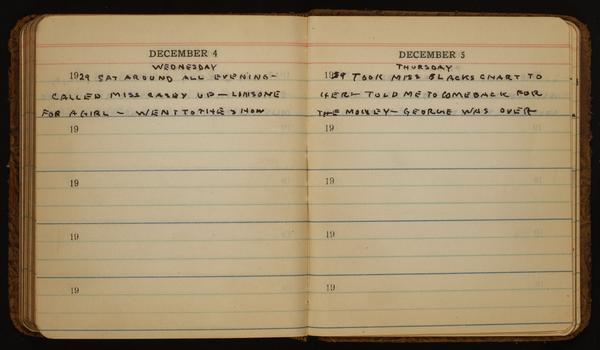 DECEMBER 4
WEDNESDAY
1929 SAT AROUND ALL EVENING-
CALLED MISS CASEY UP - LONSOME
FOR A GIRL - WENT TO THE SHOW
19
19
19
19
DECEMBER 5
THURSDAY
1929 TOOK MISS BLACKS CHART TO
HER - TOLD ME TO COME BACK FOR
THE MONEY - GEORGE WAS OVER
19
19
19
19